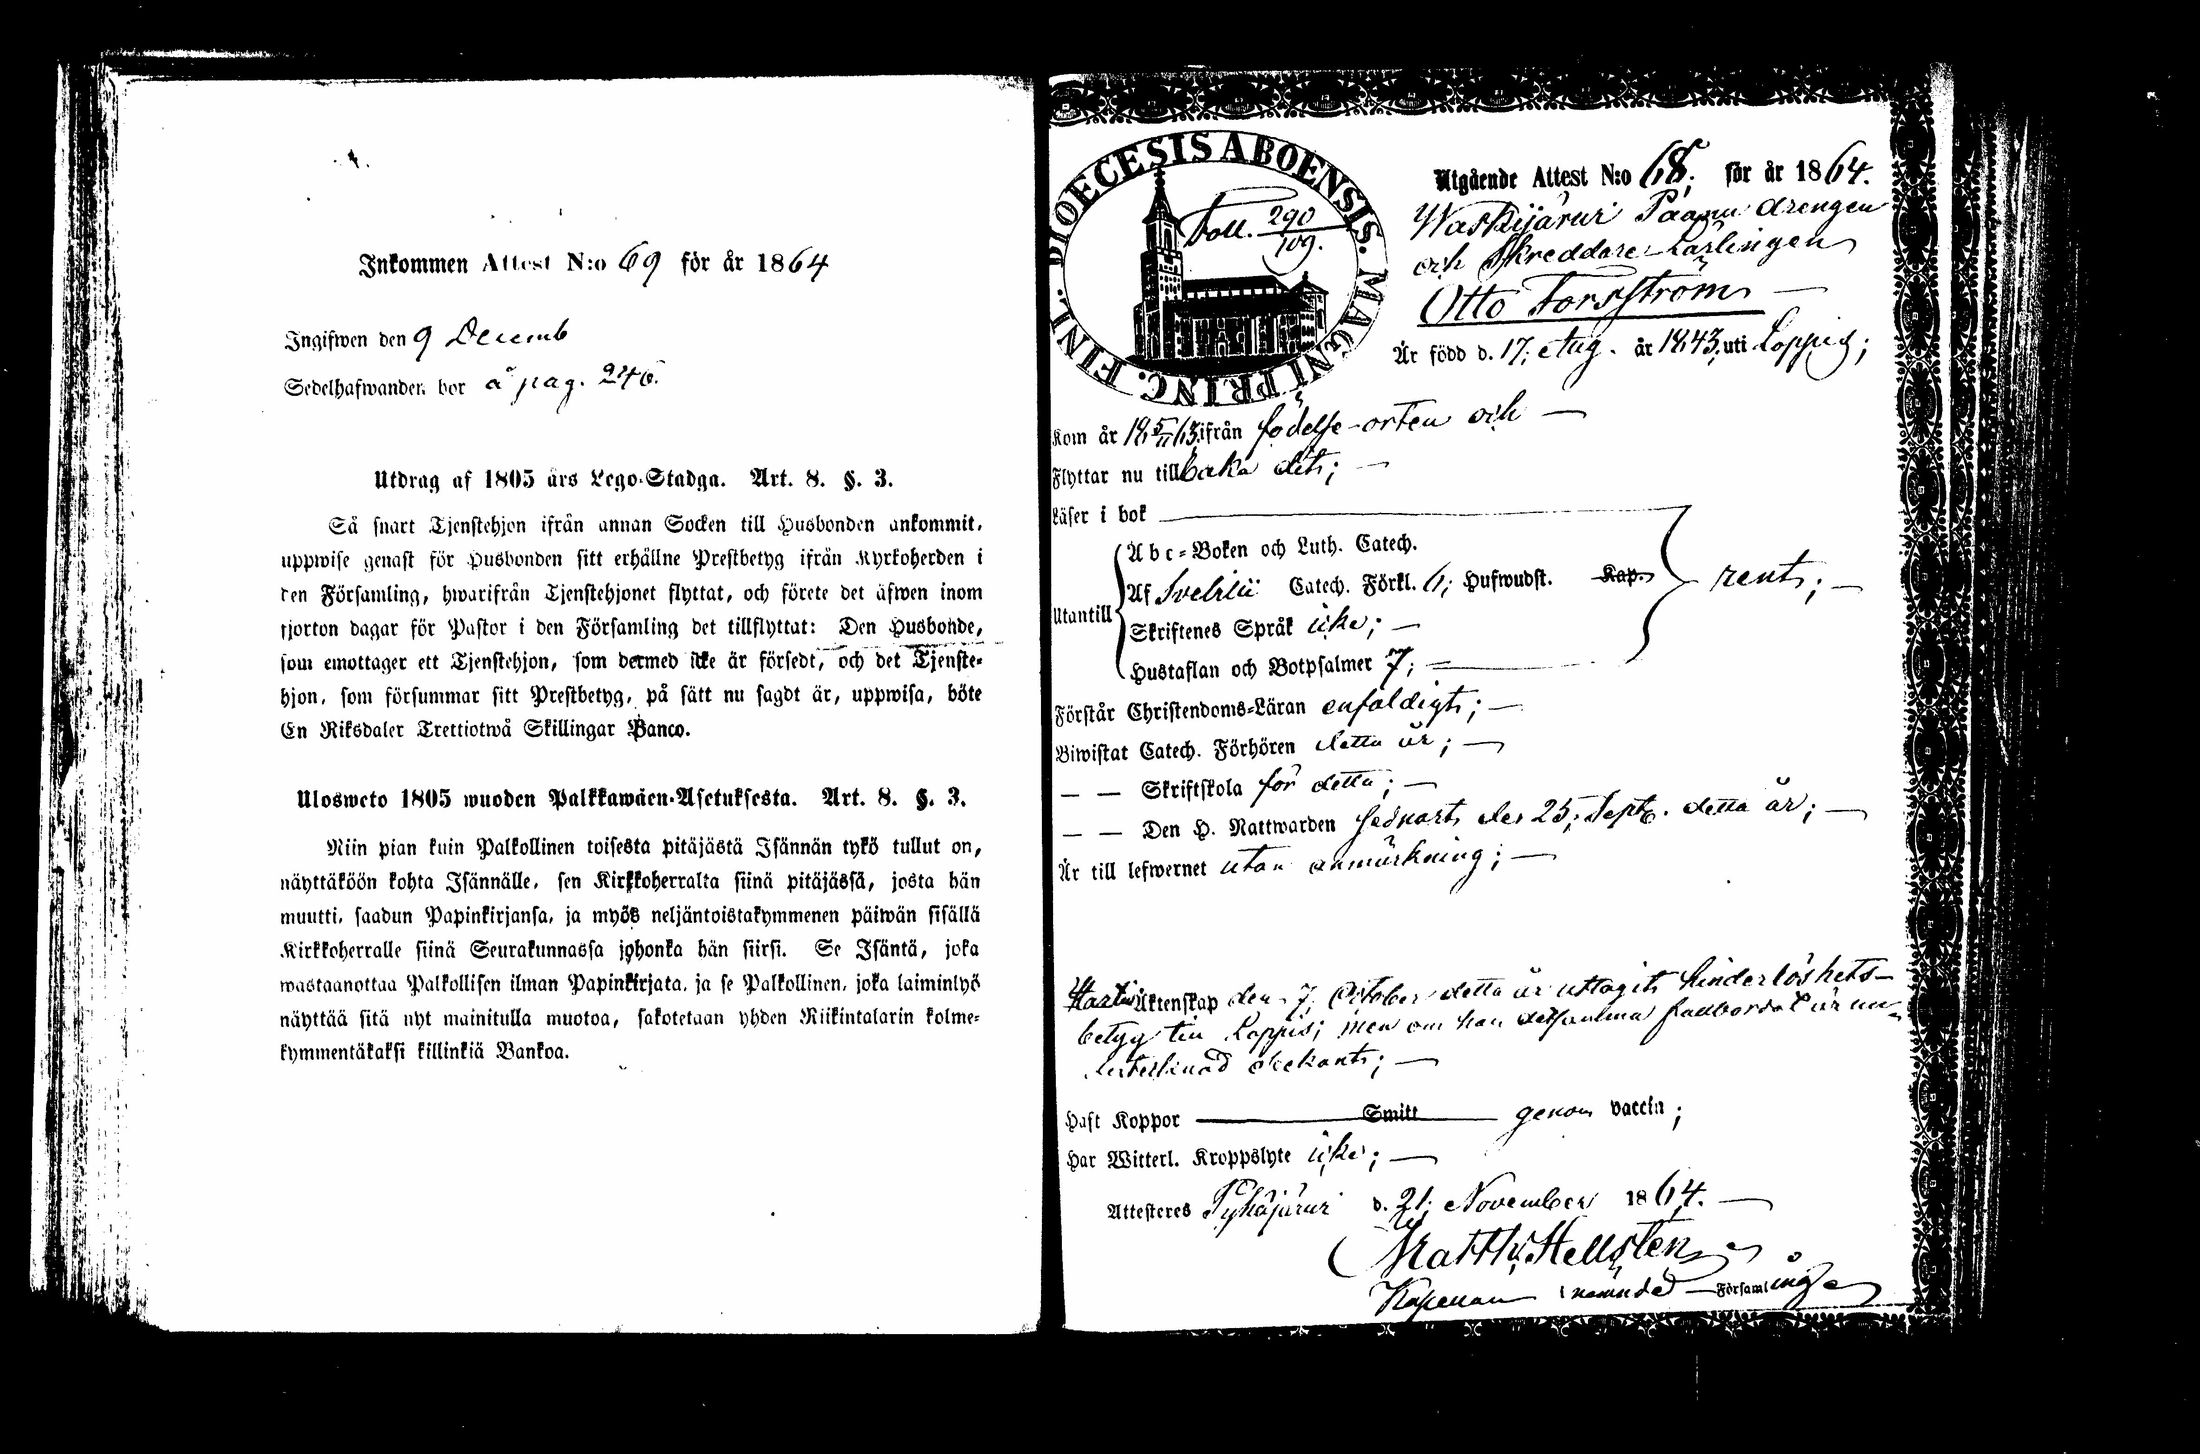 Inkommen Attest N:o 69 för år 1864
Ingifwen den 9 Decemb
Sedelhafwanden bor å pag. 246.
Utdrag af 1805 års Lego-Stadga. Art. 8. §. 3.
Så snart Tjenstehjon ifrån annan Socken till Husbonden ankommit,
uppwise genast för Husbonden sitt erhållne Prestbetyg ifrån Kyrkoherden i
den Församling, hwarifrån Tjenstehjonet flyttat, och förete det äfwen inom
fjorton dagar för Pastor i den Församling det tillflyttat: Den Husbonde,
som emottager ett Tjenstehjon, som dermed icke är försedt, och det Tjenste-
hjon, som försummar sitt Prestbetyg, på sätt nu sagdt är, uppwisa, böte
En Riksdaler Trettiotwå Skillingar Banco.
Ulosweto 1805 wuoden Palkkawäen-Asetuksesta. Art. 8. §. 3.
Niin pian kuin Palkollinen toisesta pitäjästä Isännän tykö tullut on,
näyttäköön kohta Isännälle, sen Kirkkoherralta siinä pitäjässä, josta hän
muutti, saadun Papinkirjansa, ja myös neljäntoistakymmenen päiwän sisällä
Kirkkoherralle siinä Seurakunnassa johonka hän siirsi. Se Isäntä, joka
wastaanottaa Palkollisen ilman Papinkirjata, ja se Palkollinen, joka laiminlyö
näyttää sitä nyt mainitulla muotoa, sakotetaan yhden Riikintalarin kolme-
kymmentäkaksi killinkiä Bankoa.
DIOECESIS ABOENSIS. MAGNI PRINC. FINL.
Foll. 290/109.
Utgående Attest N:o 68; för år 1864.
Waskijärwi Paanu drengen
och Skreddare-Lärlingen
Otto Forsström
Är född d. 17; Aug. år 1843; uti Loppis;
Kom år 18 5/11 63; ifrån födelse-orten och
Flyttar nu tillbaka dit;
Läser i bok
Abc-Boken och Luth. Catech.
Utantill Af Svebilii Catech. Förkl. 6; Hufwudst. Kap. rent;
Skriftenes Språk icke;
Hustaflan och Botpsalmer 7;
Förstår Christendoms-Läran enfaldigt;
Biwistat Catech. Förhören detta år;
— — Skriftskola för detta;
— — Den H. Nattwarden sednast den 25; Sept. detta år;
Är till lefwernet utan anmärkning;
Äktenskap den 7; October detta år uttagit hinderlöshets-
betyg till Loppis; men om han detsamma fullbordat är
obekant;
Haft Koppor Smitt genom vaccin;
Har Witterl. Kroppslyte icke;
Attesteres Pyhäjärwi d. 21; November 1864.
Matth: Hellsten
Kapellan i nämnde Församling